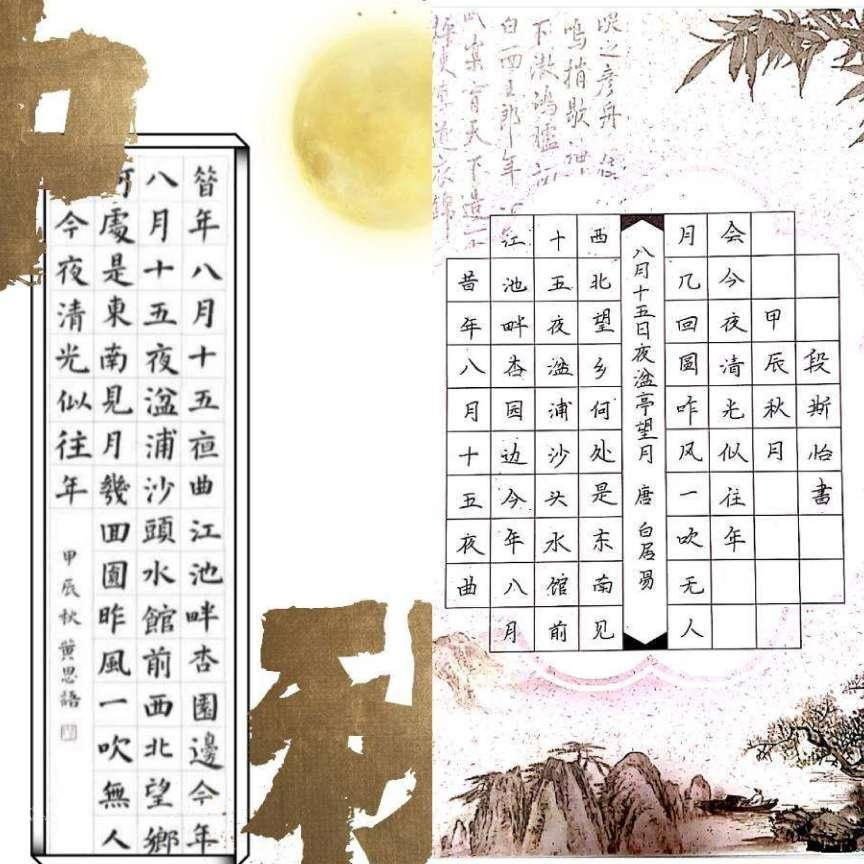 昝年八月十五亱曲江池畔杏園邊今年
八月十五夜湓浦沙頭水館前西北望鄉
何處是東南見月幾囬圓昨風一吹無人
今夜清光似往年
甲辰秋 黄思語
昔年八月十五夜曲
江池畔杏园边今年八月
十五夜湓浦沙头水馆前
西北望乡何处是东南见
八月十五日夜湓亭望月 唐 白居易
月几回圆昨风一吹无人
会今夜清光似往年
甲辰秋月
段斯怡书